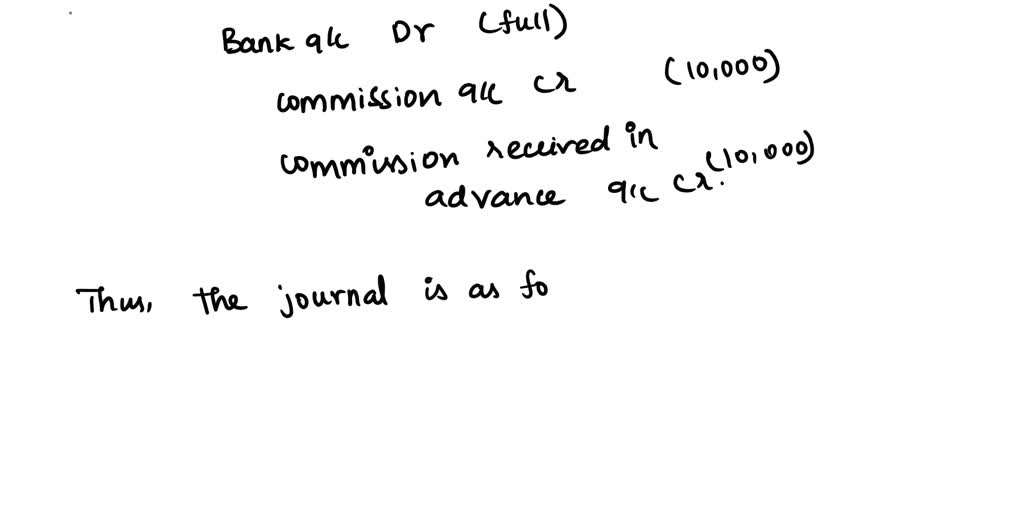 Bank a/c Dr (full)
commission a/c cr (10,000)
commission received in
advance a/c cr. (10,000)
Thus, the journal is as fo